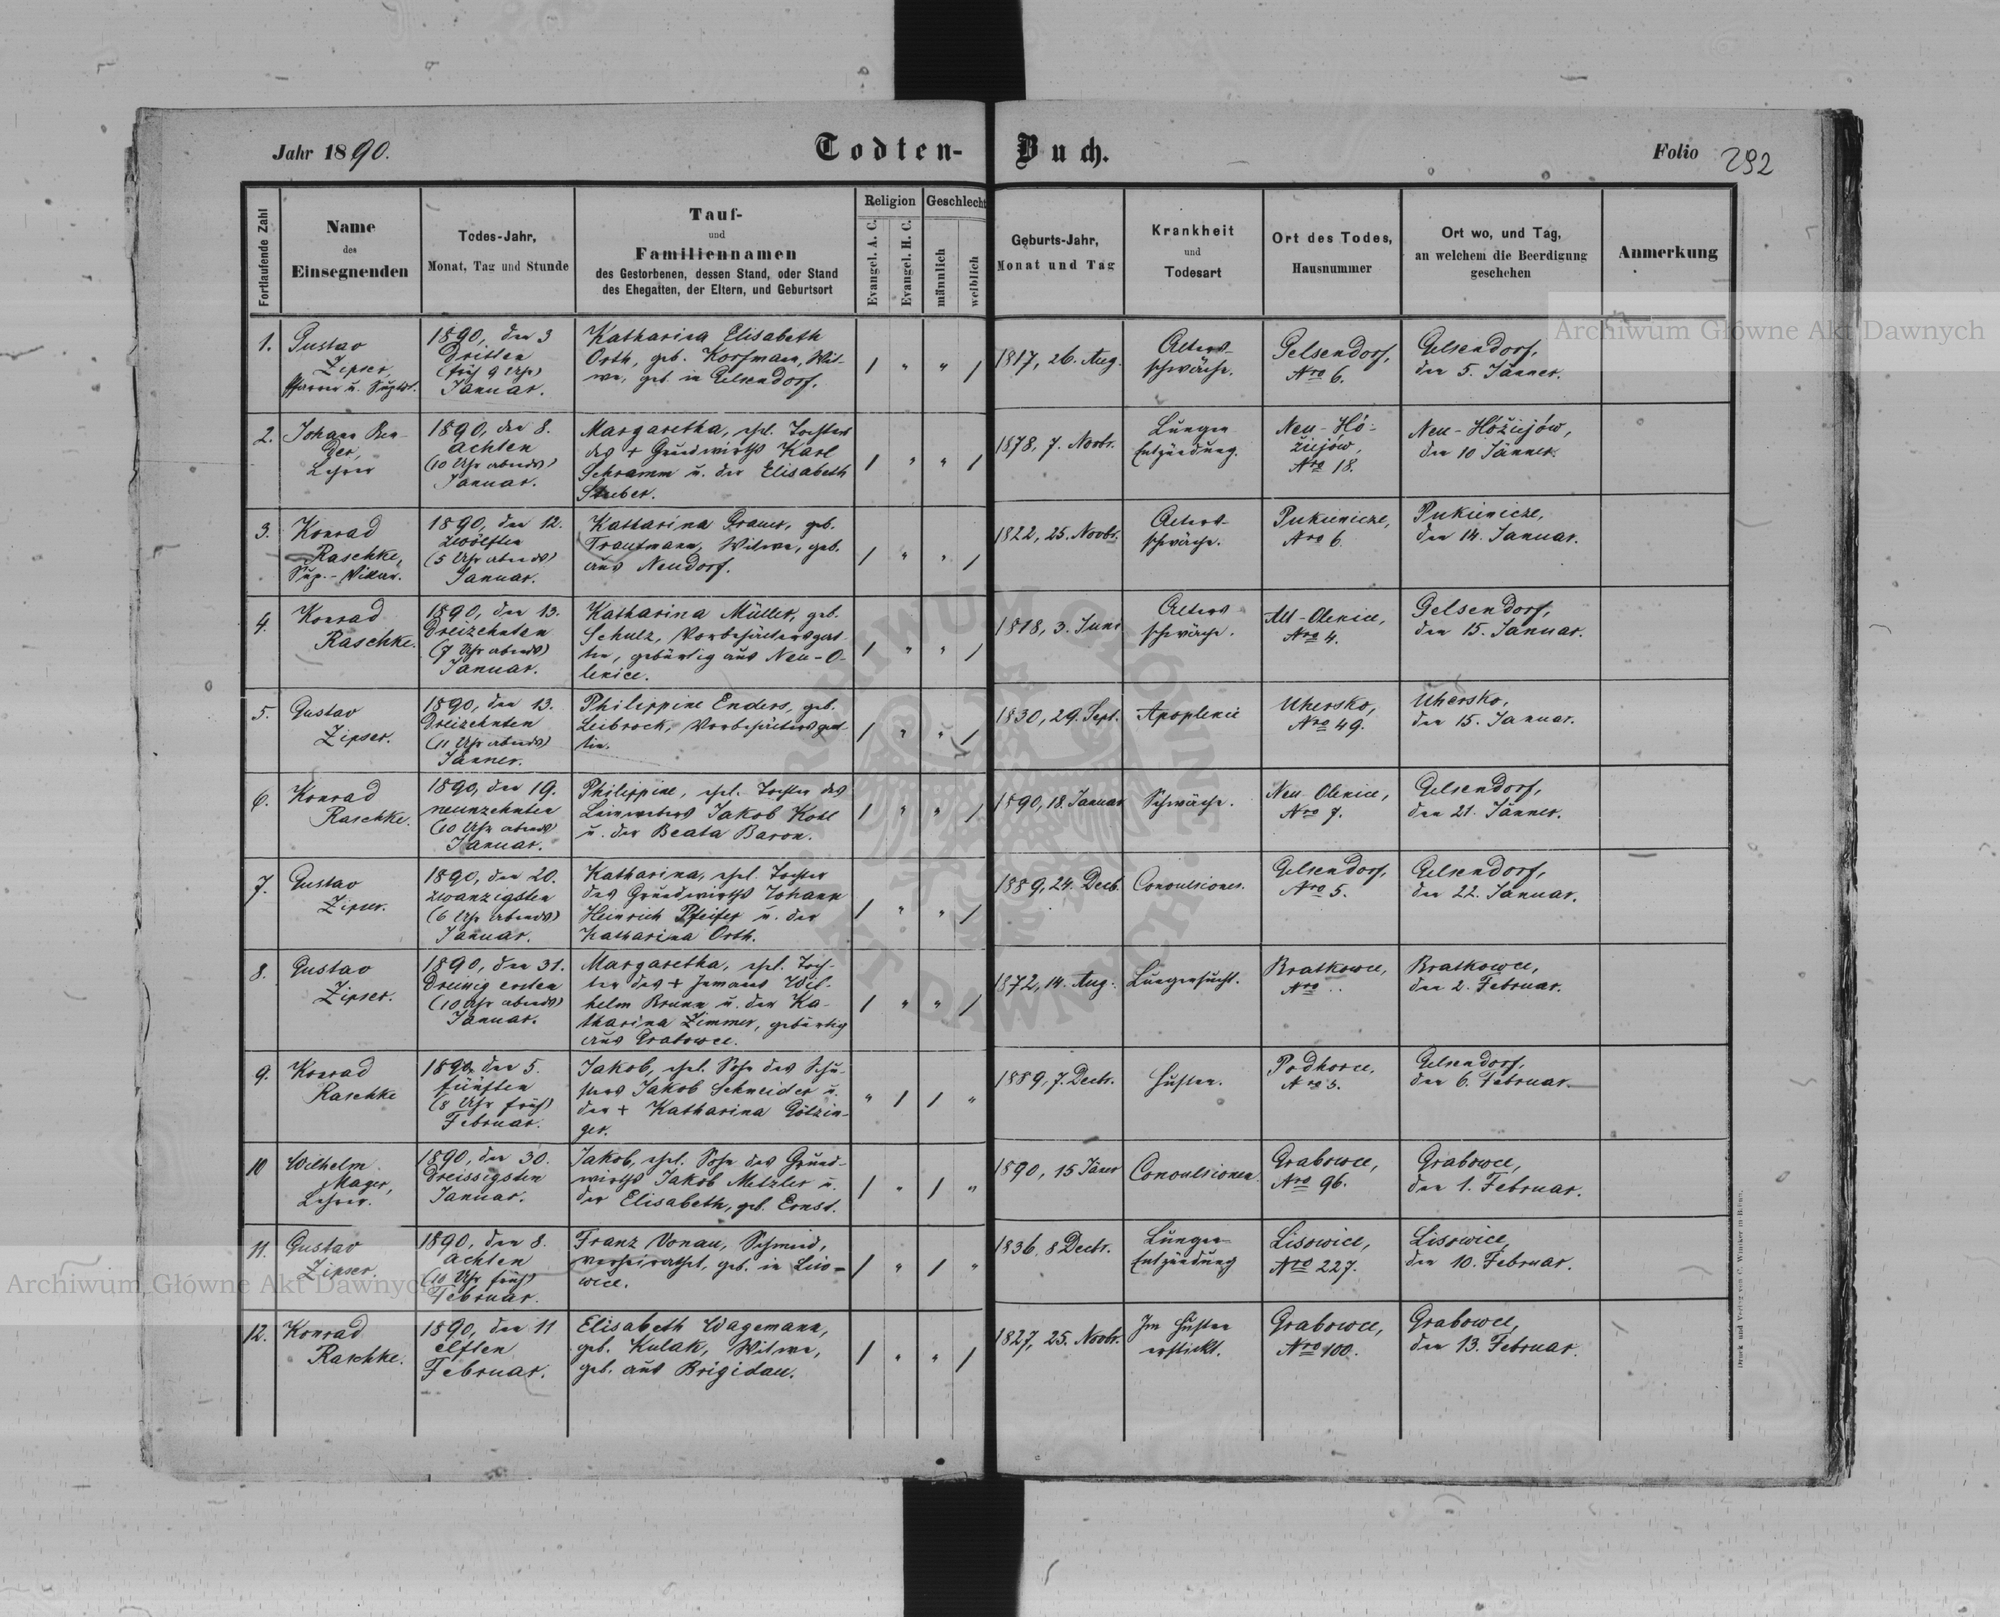 Jahr 1890.
Todten-Buch.
Folio 292
Fortlaufende Zahl
Name
des
Einsegnenden
Todes-Jahr,
Monat, Tag und Stunde
Tauf-
und
Familiennamen
des Gestorbenen, dessen Stand, oder Stand
des Ehegatten, der Eltern, und Geburtsort
Religion
Evangel. A. C.
Evangel. H. C.
Geschlecht
männlich
weiblich
Geburts-Jahr,
Monat und Tag
Krankheit
und
Todesart
Ort des Todes,
Hausnummer
Ort wo, und Tag,
an welchem die Beerdigung
geschehen
Anmerkung
1.
Gustav
Zipser,
Pfarrer u.
1890, den 3
Dritten
(früh 9 Uhr)
Januar.
Katharina Elisabeth
Orth, geb. Korfmann, Wit-
we, geb. in Gelsendorf.
/ " " /
1817, 26. Aug.
Alters-
schwäche.
Gelsendorf,
Nro 6.
Gelsendorf,
den 5. Jänner.
2.
Johann Ben-
der,
Lehrer
1890, den 8.
Achten
(10 Uhr abends)
Januar.
Margaretha, ehel. Tochter
des + Grundwirths Karl
Schramm u. der Elisabeth
Stuber.
/ " " /
1878, 7. Novbr.
Lungen
Entzündung.
Neu-Hó-
żiejów,
Nro 18.
Neu-Hóżiejów,
den 10 Jänner.
3.
Konrad
Raschke,
Sup.-Vikar.
1890, den 12.
zwölften
(5 Uhr abends)
Januar.
Katharina Bramer, geb.
Trautmann, Witwe, geb.
aus Neudorf.
/ " " /
1822, 25. Novbr.
Alters-
schwäche.
Pukienicze,
Nro 6.
Pukienicze,
den 14. Januar.
4.
Konrad
Raschke.
1890, den 13.
Dreizehnten
(7 Uhr abends)
Januar.
Katharina Müller, geb.
Schulz, Vorbehältersgat-
tin, gebürtig aus Neu-O-
lenice.
/ " " /
1818, 3. Juni
Alters-
schwäche.
Alt-Olenice,
Nro 4.
Gelsendorf,
den 15. Januar.
5.
Gustav
Zipser.
1890, den 13.
Dreizehnten
(11 Uhr abends)
Jänner.
Philippine Enders, geb.
Leibrock, Vorbehältersgat-
tin.
/ " " /
1830, 29. Sept.
Apoplexie
Uhersko,
Nro 49.
Uhersko,
den 15. Januar.
6.
Konrad
Raschke.
1890, den 19.
neunzehnten
(10 Uhr abends)
Januar.
Philippine, ehel. Tochter des
Leinwebers Jakob Koll
u. der Beata Baron.
/ " " /
1890, 18. Januar
Schwäche.
Neu-Olenice,
Nro 7.
Gelsendorf,
den 21. Jänner.
7.
Gustav
Zipser.
1890, den 20.
zwanzigsten
(6 Uhr Abends)
Januar.
Katharina, ehel. Tochter
des Grundwirths Johann
Heinrich Pfeifer u. der
Katharina Orth.
/ " " /
1889, 24. Decb.
Convulsionen.
Gelsendorf,
Nro 5.
Gelsendorf,
den 22. Januar.
8.
Gustav
Zipser.
1890, den 31.
Dreissig ersten
(10 Uhr abends)
Januar.
Margaretha, ehel. Toch-
ter des + Wil-
helm Brunn u. der Ka-
tharina Zimmer, gebürtig
aus Grabowce.
/ " " /
1872, 14. Aug.
Lungensucht.
Bratkowce,
Nro ..
Bratkowce,
den 2. Februar.
9.
Konrad
Raschke
1890, den 5.
fünften
(8 Uhr früh)
Februar.
Jakob, ehel. Sohn des
Jakob Schneider u.
der + Katharina Götzin-
ger.
" / / "
1889, 7. Decbr.
Husten.
Podhorce,
Nro 3.
Gelsendorf,
den 6. Februar.
10
Wilhelm
Mager,
Lehrer.
1890, den 30.
Dreissigsten
Januar.
Jakob, ehel. Sohn des Grund-
wirths Jakob Metzler u.
der Elisabeth, geb. Ernst.
/ " / "
1890, 15 Jäner
Convulsionen.
Grabowce,
Nro 96.
Grabowce,
den 1. Februar.
11.
Gustav
Zipser.
1890, den 8.
Achten
(10 Uhr früh)
Februar.
Franz Vonau, Schmied,
verheirathet, geb. in Liso-
wice.
/ " / "
1836, 8 Decbr.
Lungen-
Entzündung
Lisowice,
Nro 227.
Lisowice,
den 10. Februar.
12.
Konrad
Raschke.
1890, den 11
elften
Februar.
Elisabeth Wagemann,
geb. Kulak, Witwe,
geb. aus Brigidau.
/ " " /
1827, 25. Novbr.
Im Husten
erstickt.
Grabowce,
Nro 100.
Grabowce,
den 13. Februar.
Archiwum Główne Akt Dawnych
Archiwum Główne Akt Dawnych
ARCHIWUM GŁÓWNE AKT DAWNYCH